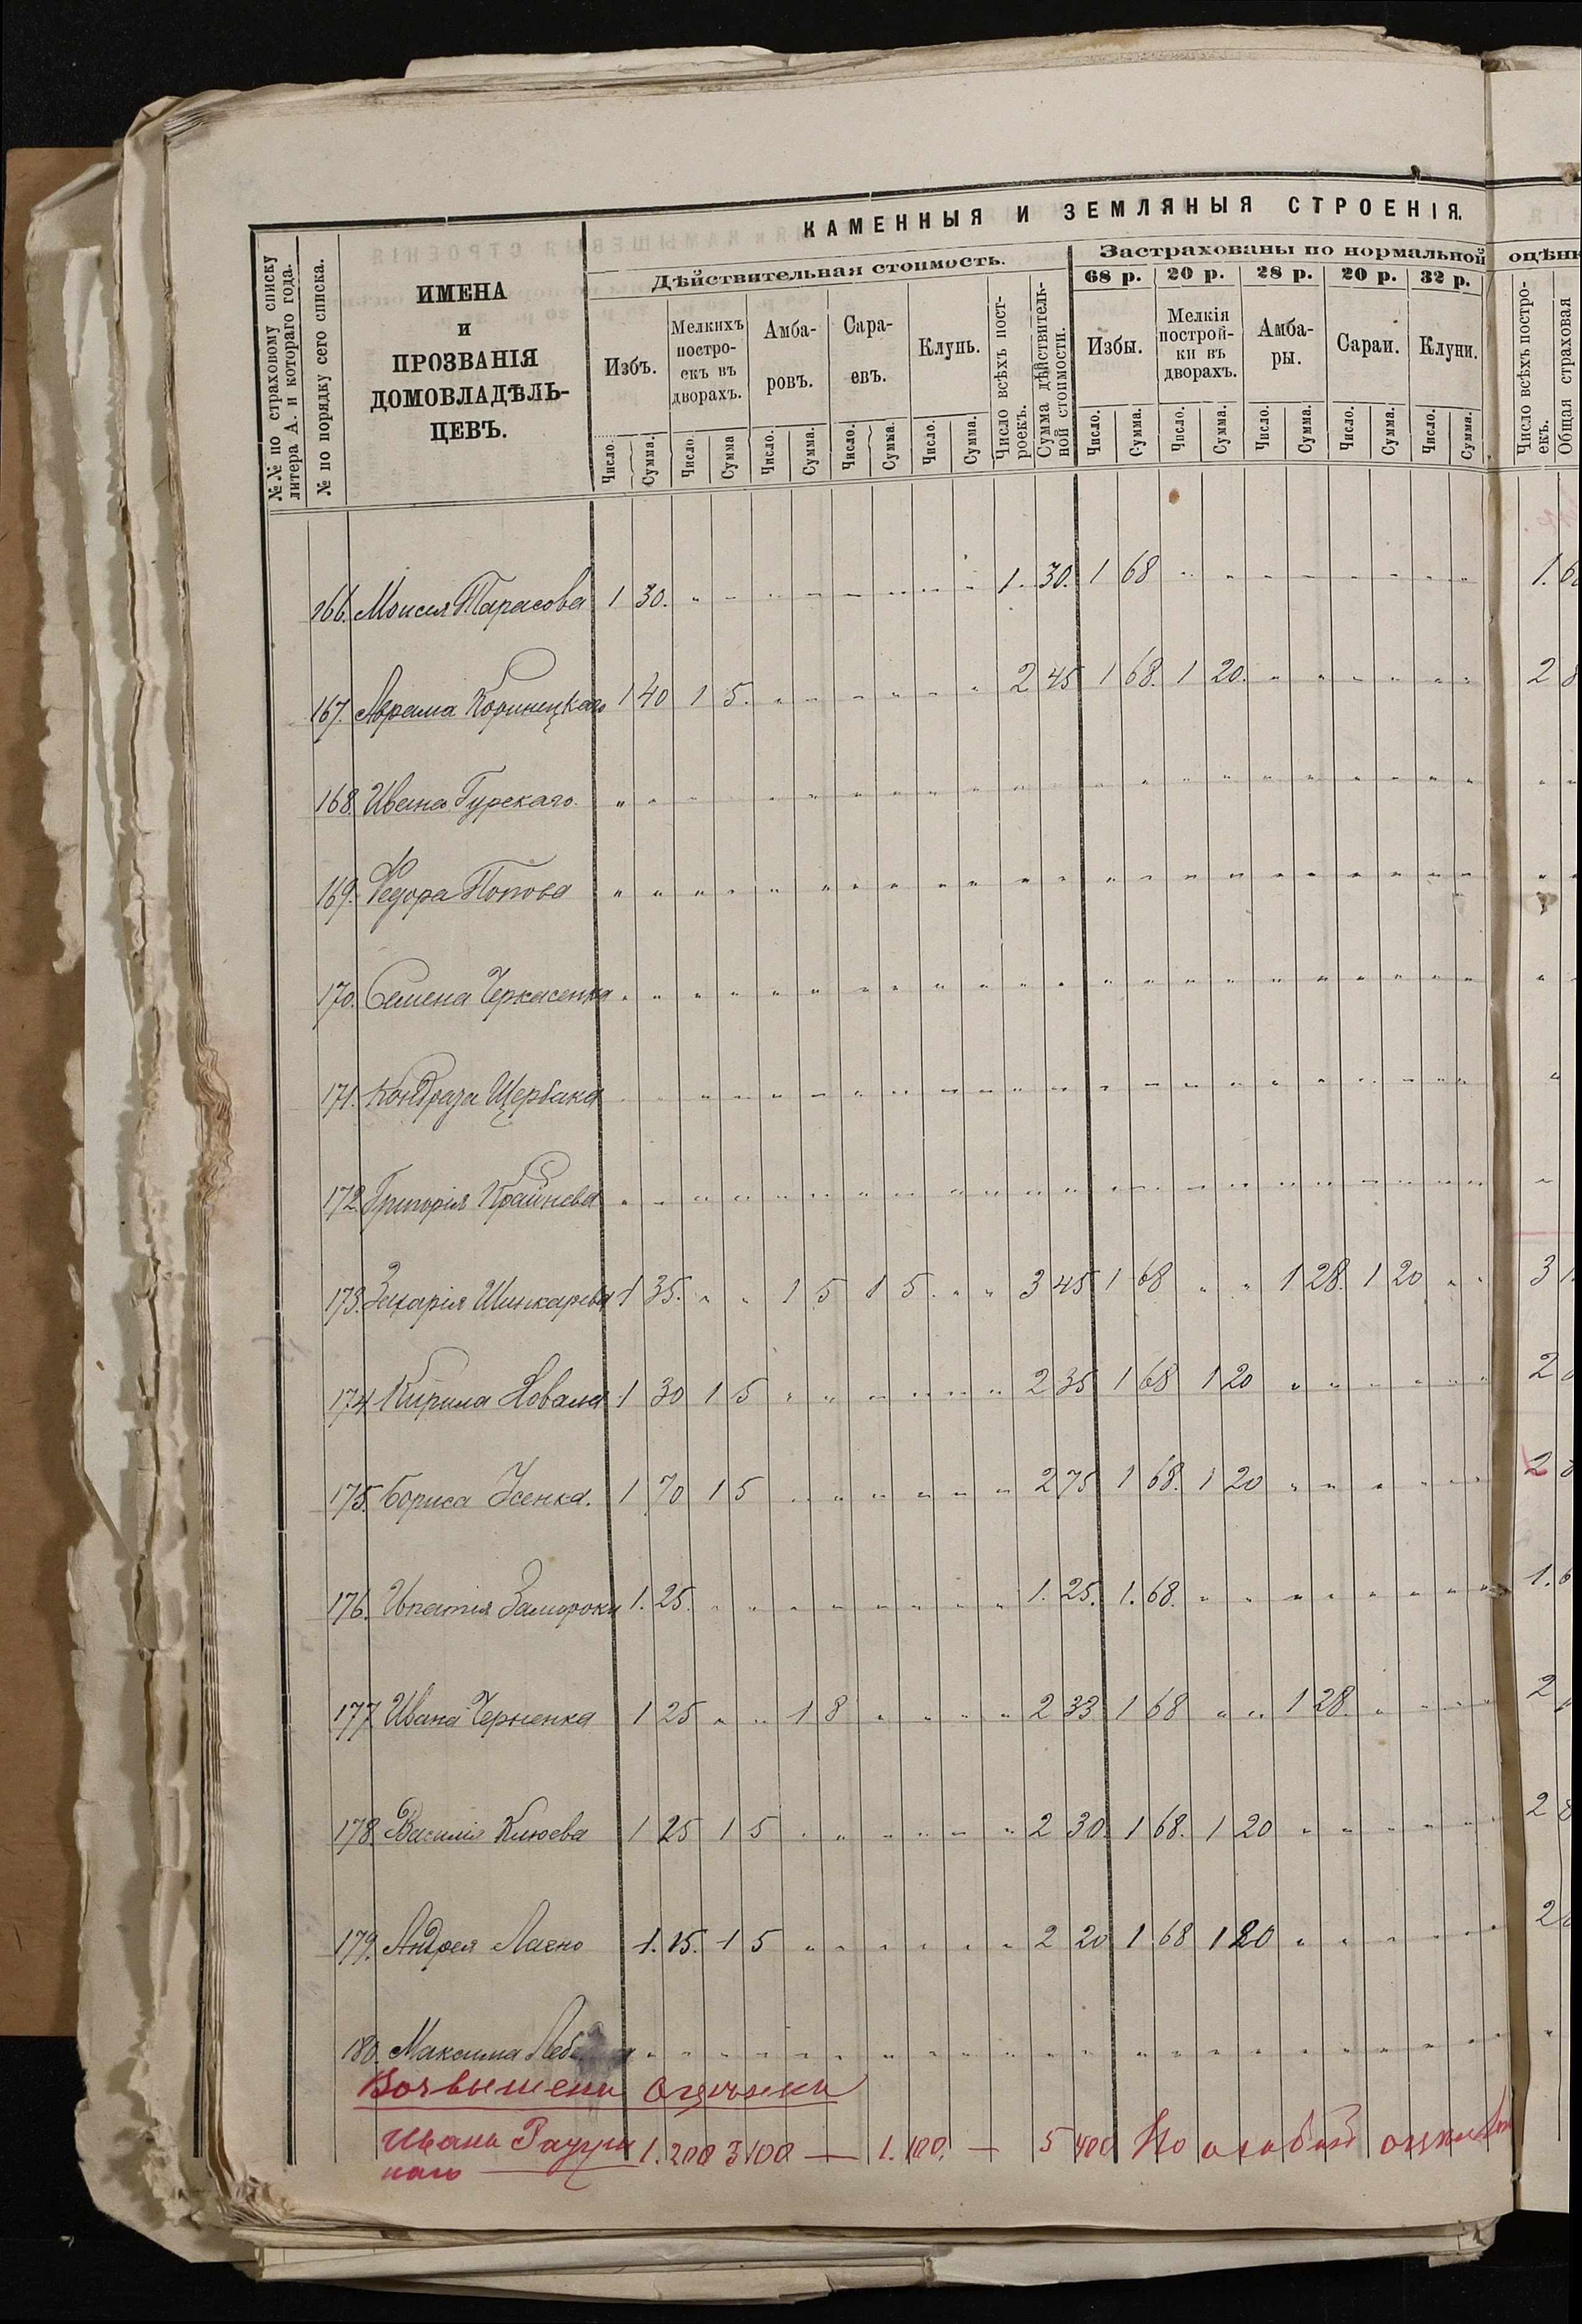 КАМЕННЫЯ И ЗЕМЛЯНЫЯ СТРОЕНІЯ.
№№ по страховому списку литера А. и котораго года.
№ по порядку сего списка.
ИМЕНА
и
ПРОЗВАНІЯ
ДОМОВЛАДѢЛЬ-
ЦЕВЪ.
Дѣйствительная стоимость.
Застрахованы по нормальной оцѣн
68 р. 20 р. 28 р. 20 р. 32 р.
Избъ.
Мелкихъ
постро-
екъ въ
дворахъ.
Амба-
ровъ.
Сара-
евъ.
Клунь.
Число всѣхъ пост-
роекъ.
Сумма дѣйствитель-
ной стоимости.
Избы.
Мелкія
построй-
ки въ
дворахъ.
Амба-
ры.
Сараи.
Клуни.
Число всѣхъ постро-
екъ.
Общая страховая
Число. Сумма. Число. Сумма Число. Сумма. Число. Сумма. Число. Сумма. Число. Сумма. Число. Сумма. Число. Сумма. Число. Сумма. Число. Сумма.
166. Моисея Тарасова 1 30. " " " " " " " " 1. 30. 1 68 " " " " " " " " 1. 6
167. Аврама Коринецкаго 1 40 1 5. " " " " " " 2 45 1 68. 1 20. " " " " " " 2 8
168. Ивана Гурскаго. " " " " " " " " " " " " " " " " " " " " " " " "
169. Федора Попова " " " " " " " " " " " " " " " " " " " " " " " "
170. Семена Черкасенка " " " " " " " " " " " " " " " " " " " " " " " "
171. Кондрата Щербака " " " " " " " " " " " " " " " " " " " " " " "
172. Григорія Крайнева " " " " " " " " " " " " " " " " " " " " " " "
173. Захарія Шинкарева 1 35. " " 1 5 1 5. " " 3 45 1 68 " " 1 28. 1 20 " " 3 1
174. Кирила Коваля 1 30 1 5 " " " " " " 2 35 1 68 1 20 " " " " " " 2 8
175. Бориса Усенка. 1 70 1 5 " " " " " " 2 75 1 68. 1 20 " " " " " " 2 8
176. Ипатія Замороки 1. 25. " " " " " " " " 1. 25. 1. 68. " " " " " " " " 1. 6
177. Ивана Черненка 1 25 " " 1 8 " " " " 2 33 1 68 " " 1 28. " " " " 2
178. Василія Клюева 1 25 1 5 " " " " " " 2 30. 1 68. 1 20 " " " " " " 2 8
179. Андрея Лагно 1. 15. 1 5 " " " " " " 2 20 1 68 1 20 " " " " " " 2 8
180. Максима " " " " " " " " " " " " " " " " " " " " " " "
Возвышены оцѣнки
Ивана 1. 200 3 100 — 1. 100. — 5 400 По особой оцѣнкѣ